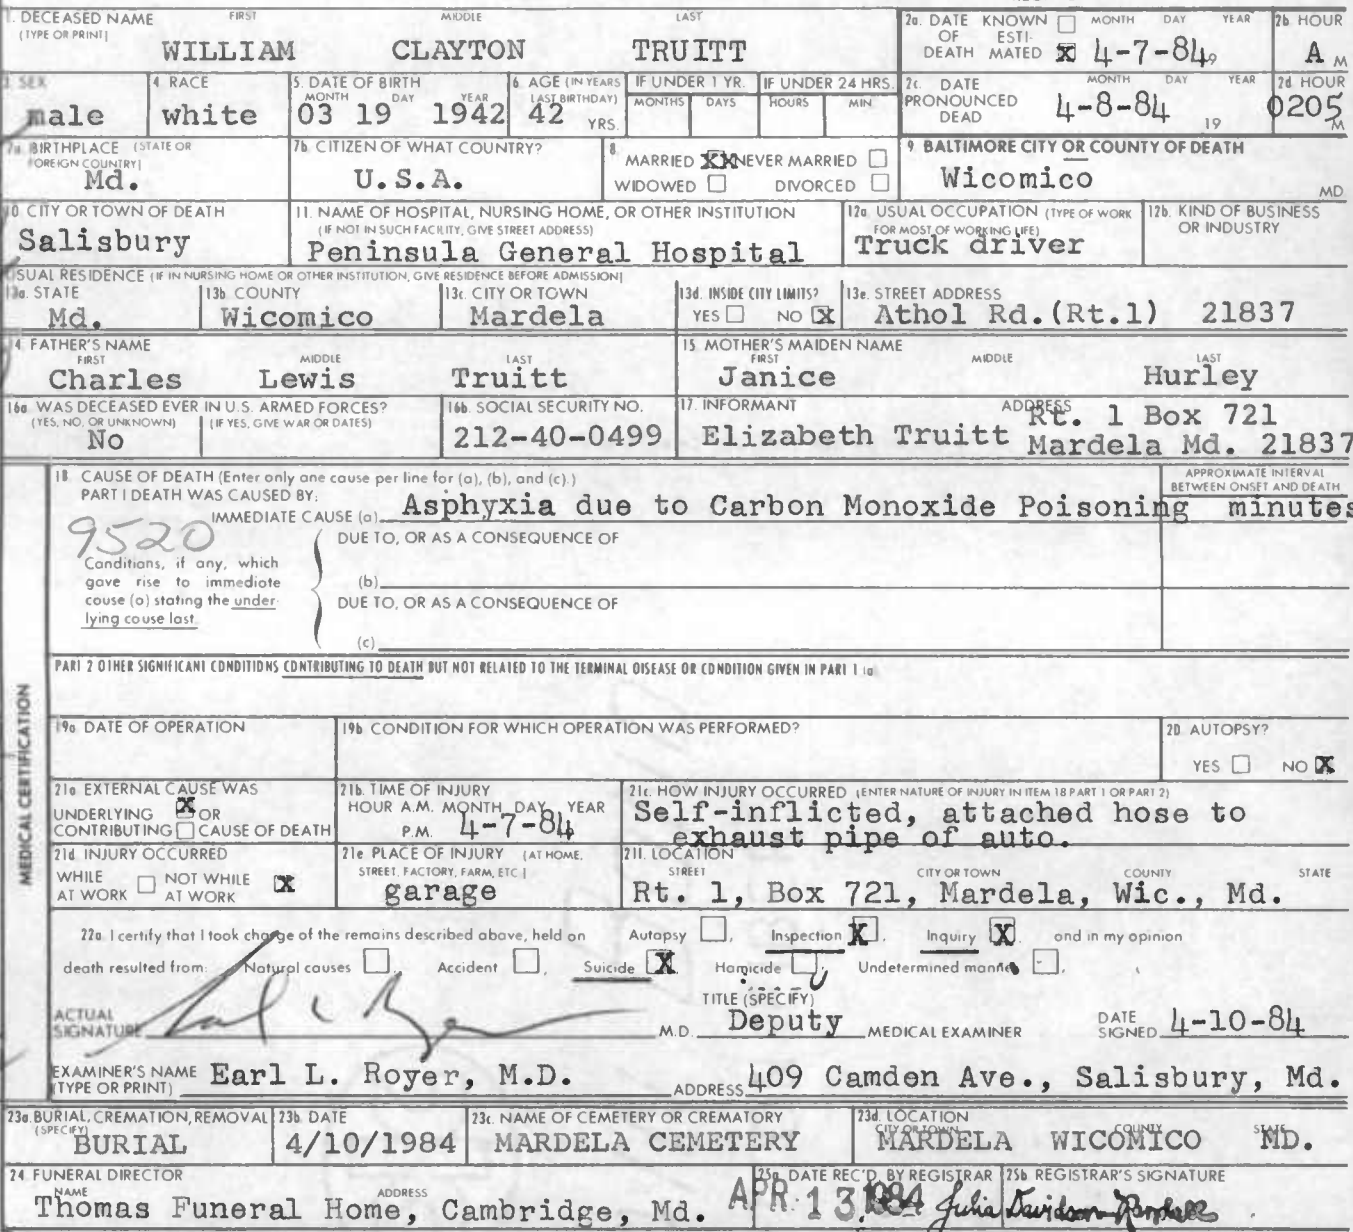 1. DECEASED NAME FIRST MIDDLE LAST
(TYPE OR PRINT)
WILLIAM CLAYTON TRUITT
2a. DATE KNOWN MONTH DAY YEAR
OF ESTI-
DEATH MATED X 4-7-84
2b. HOUR
A M
3. SEX
male
4. RACE
white
5. DATE OF BIRTH
MONTH DAY YEAR
03 19 1942
6. AGE (IN YEARS
LAST BIRTHDAY)
42 YRS.
IF UNDER 1 YR.
MONTHS DAYS
IF UNDER 24 HRS.
HOURS MIN.
2c. DATE MONTH DAY YEAR
PRONOUNCED
DEAD 4-8-84 19
2d. HOUR
0205 M
7a. BIRTHPLACE (STATE OR
FOREIGN COUNTRY)
Md.
7b. CITIZEN OF WHAT COUNTRY?
U.S.A.
8. MARRIED XX NEVER MARRIED
WIDOWED DIVORCED
9. BALTIMORE CITY OR COUNTY OF DEATH
Wicomico MD.
10. CITY OR TOWN OF DEATH
Salisbury
11. NAME OF HOSPITAL, NURSING HOME, OR OTHER INSTITUTION
(IF NOT IN SUCH FACILITY, GIVE STREET ADDRESS)
Peninsula General Hospital
12a. USUAL OCCUPATION (TYPE OF WORK
FOR MOST OF WORKING LIFE)
Truck driver
12b. KIND OF BUSINESS
OR INDUSTRY
USUAL RESIDENCE (IF IN NURSING HOME OR OTHER INSTITUTION, GIVE RESIDENCE BEFORE ADMISSION)
13a. STATE
Md.
13b. COUNTY
Wicomico
13c. CITY OR TOWN
Mardela
13d. INSIDE CITY LIMITS?
YES NO X
13e. STREET ADDRESS
Athol Rd.(Rt.1) 21837
14. FATHER'S NAME
FIRST MIDDLE LAST
Charles Lewis Truitt
15. MOTHER'S MAIDEN NAME
FIRST MIDDLE LAST
Janice Hurley
16a. WAS DECEASED EVER IN U.S. ARMED FORCES?
(YES, NO, OR UNKNOWN) (IF YES, GIVE WAR OR DATES)
No
16b. SOCIAL SECURITY NO.
212-40-0499
17. INFORMANT ADDRESS
Elizabeth Truitt Rt. 1 Box 721
Mardela Md. 21837
MEDICAL CERTIFICATION
18. CAUSE OF DEATH (Enter only one cause per line for (a), (b), and (c).)
PART I DEATH WAS CAUSED BY:
APPROXIMATE INTERVAL
BETWEEN ONSET AND DEATH
IMMEDIATE CAUSE (a) Asphyxia due to Carbon Monoxide Poisoning minutes
9520
DUE TO, OR AS A CONSEQUENCE OF
Conditions, if any, which
gave rise to immediate
cause (a) stating the under-
lying cause last.
(b)
DUE TO, OR AS A CONSEQUENCE OF
(c)
PART 2 OTHER SIGNIFICANT CONDITIONS CONTRIBUTING TO DEATH BUT NOT RELATED TO THE TERMINAL DISEASE OR CONDITION GIVEN IN PART 1 (a)
19a. DATE OF OPERATION
19b. CONDITION FOR WHICH OPERATION WAS PERFORMED?
20. AUTOPSY?
YES NO X
21a. EXTERNAL CAUSE WAS
UNDERLYING X OR
CONTRIBUTING CAUSE OF DEATH
21b. TIME OF INJURY
HOUR A.M. MONTH DAY YEAR
P.M. 4-7-84
21c. HOW INJURY OCCURRED (ENTER NATURE OF INJURY IN ITEM 18 PART 1 OR PART 2)
Self-inflicted, attached hose to
exhaust pipe of auto.
21d. INJURY OCCURRED
WHILE NOT WHILE X
AT WORK AT WORK
21e. PLACE OF INJURY (AT HOME,
STREET, FACTORY, FARM, ETC.)
garage
21f. LOCATION
STREET CITY OR TOWN COUNTY STATE
Rt. 1, Box 721, Mardela, Wic., Md.
22a. I certify that I took charge of the remains described above, held an Autopsy , Inspection X , Inquiry X . and in my opinion
death resulted from: Natural causes , Accident , Suicide X Homicide , Undetermined manner .
ACTUAL
SIGNATURE M.D.
TITLE (SPECIFY)
Deputy MEDICAL EXAMINER
DATE
SIGNED 4-10-84
EXAMINER'S NAME Earl L. Royer, M.D.
(TYPE OR PRINT)
ADDRESS 409 Camden Ave., Salisbury, Md.
23a. BURIAL, CREMATION, REMOVAL
(SPECIFY)
BURIAL
23b. DATE
4/10/1984
23c. NAME OF CEMETERY OR CREMATORY
MARDELA CEMETERY
23d. LOCATION
CITY OR TOWN COUNTY STATE
MARDELA WICOMICO MD.
24. FUNERAL DIRECTOR
NAME ADDRESS
Thomas Funeral Home, Cambridge, Md.
25a. DATE REC'D. BY REGISTRAR
APR 13 1984
25b. REGISTRAR'S SIGNATURE
Julia Davidson-Randall